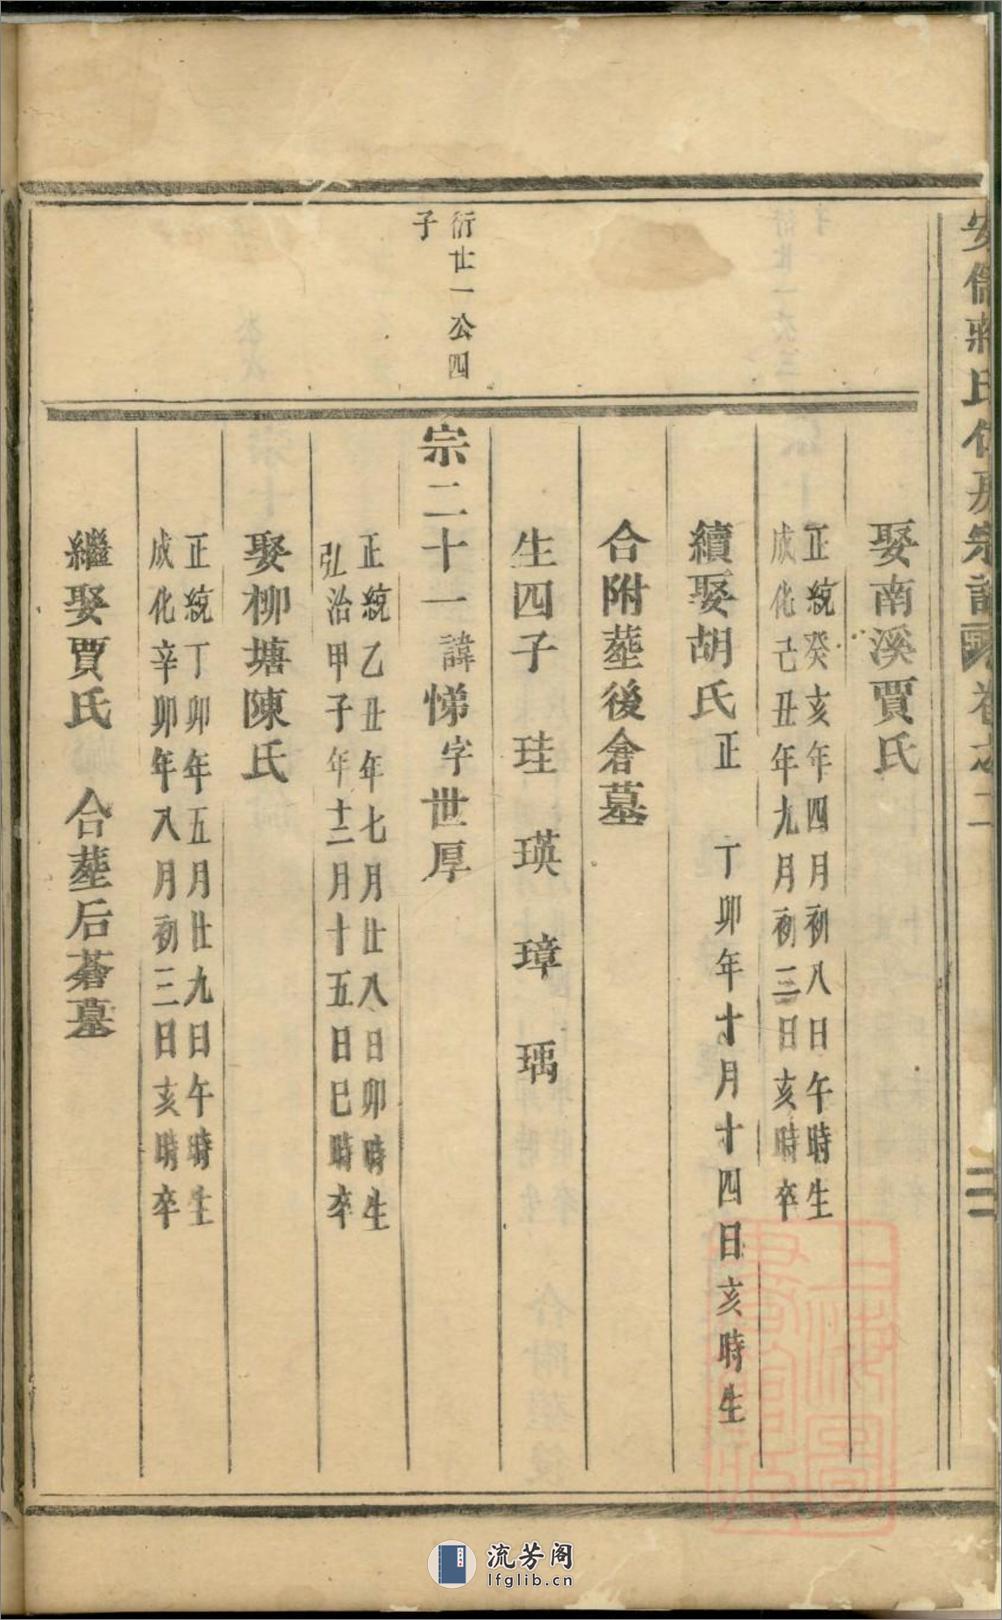 娶南溪賈氏
正統癸亥年四月初八日午時生
成化己丑年九月初三日亥時卒
續娶胡氏正 丁卯年十月十四日亥時生
合附塟後倉墓
生四子 珪 瑛 璋 瑀
衍世一公四
子
宗二十一諱悌字世厚
正統乙丑年七月廿八日卯時生
弘治甲子年十二月十五日巳時卒
娶柳塘陳氏
正統丁卯年五月廿九日午時生
成化辛卯年八月初三日亥時卒
繼娶賈氏 合塟后蒼墓
流芳阁
lfglib.cn